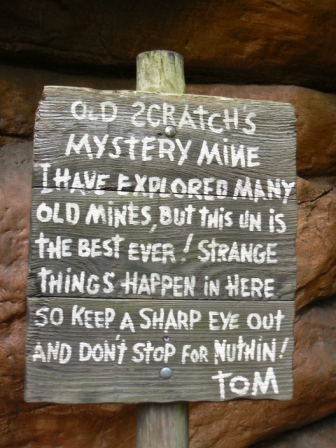 OLD SCRATCH'S
MYSTERY MINE
I HAVE EXPLORED MANY
OLD MINES, BUT THIS UN IS
THE BEST EVER! STRANGE
THINGS HAPPEN IN HERE
SO KEEP A SHARP EYE OUT
AND DON'T STOP FOR NUTHIN!
TOM